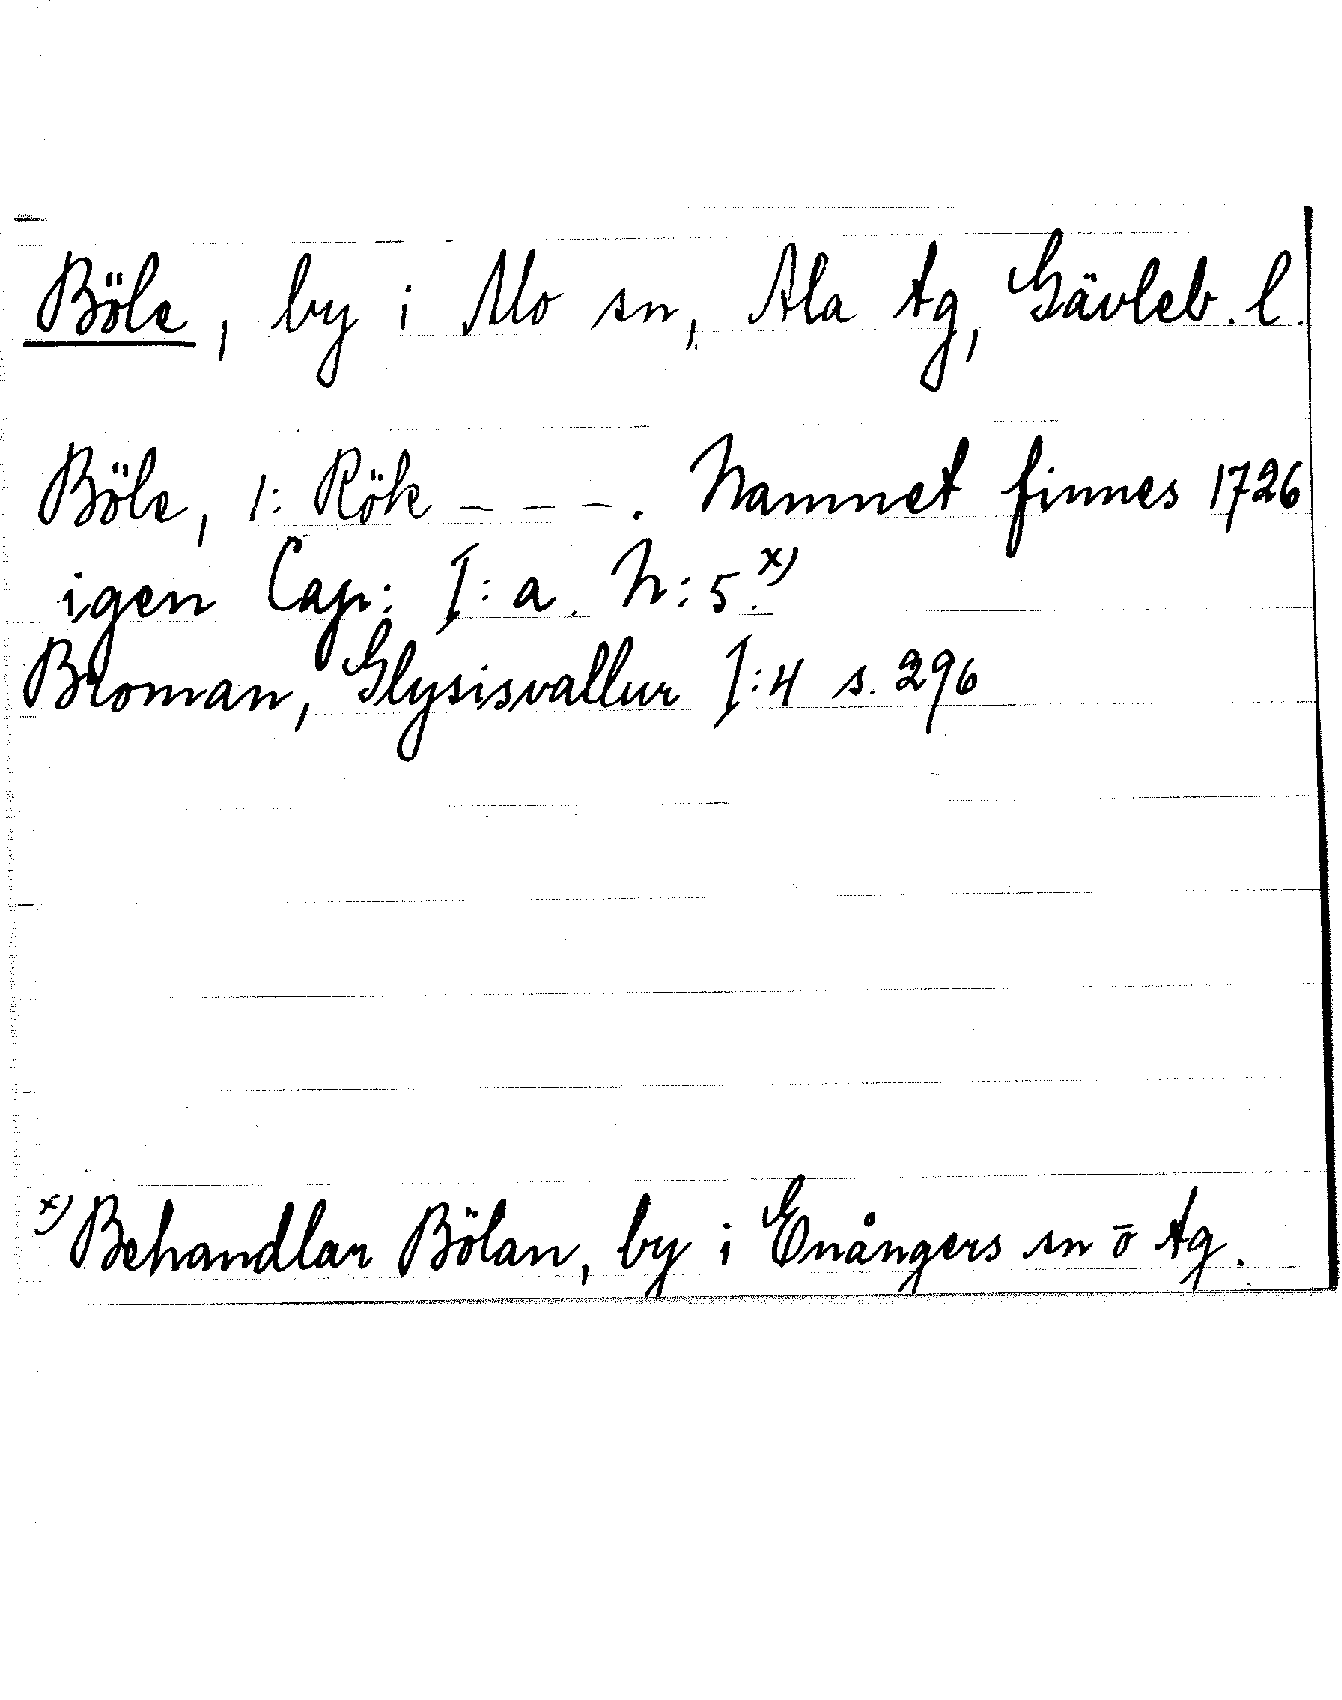 Böle, by i Mo sn, Ala tg, Gävleb. l.
Böle, 1: Rök _ _ _ . Namnet finnes 1726
igen Cap: I: a. N: 5.x)
Broman, Glysisvallur I:4 s. 296
x) Behandlar Bölan, by i Enångers sn o tg.